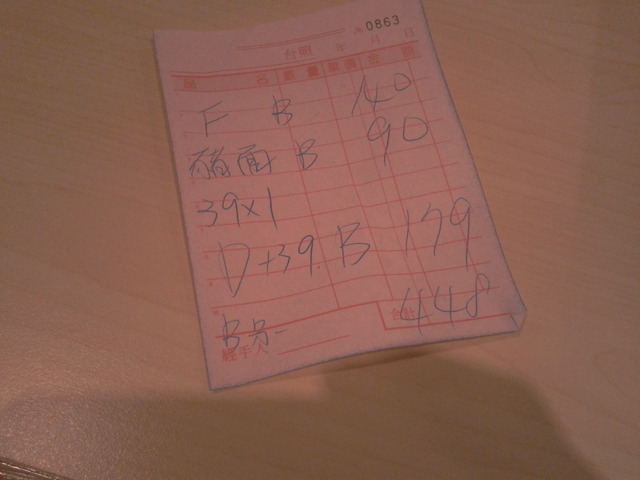 № 0863
台照 年 月 日
品名 數量 單價 金額
F B 140
豬面 B 90
39×1
D+39 B 179
合計 448
B另-
經手人